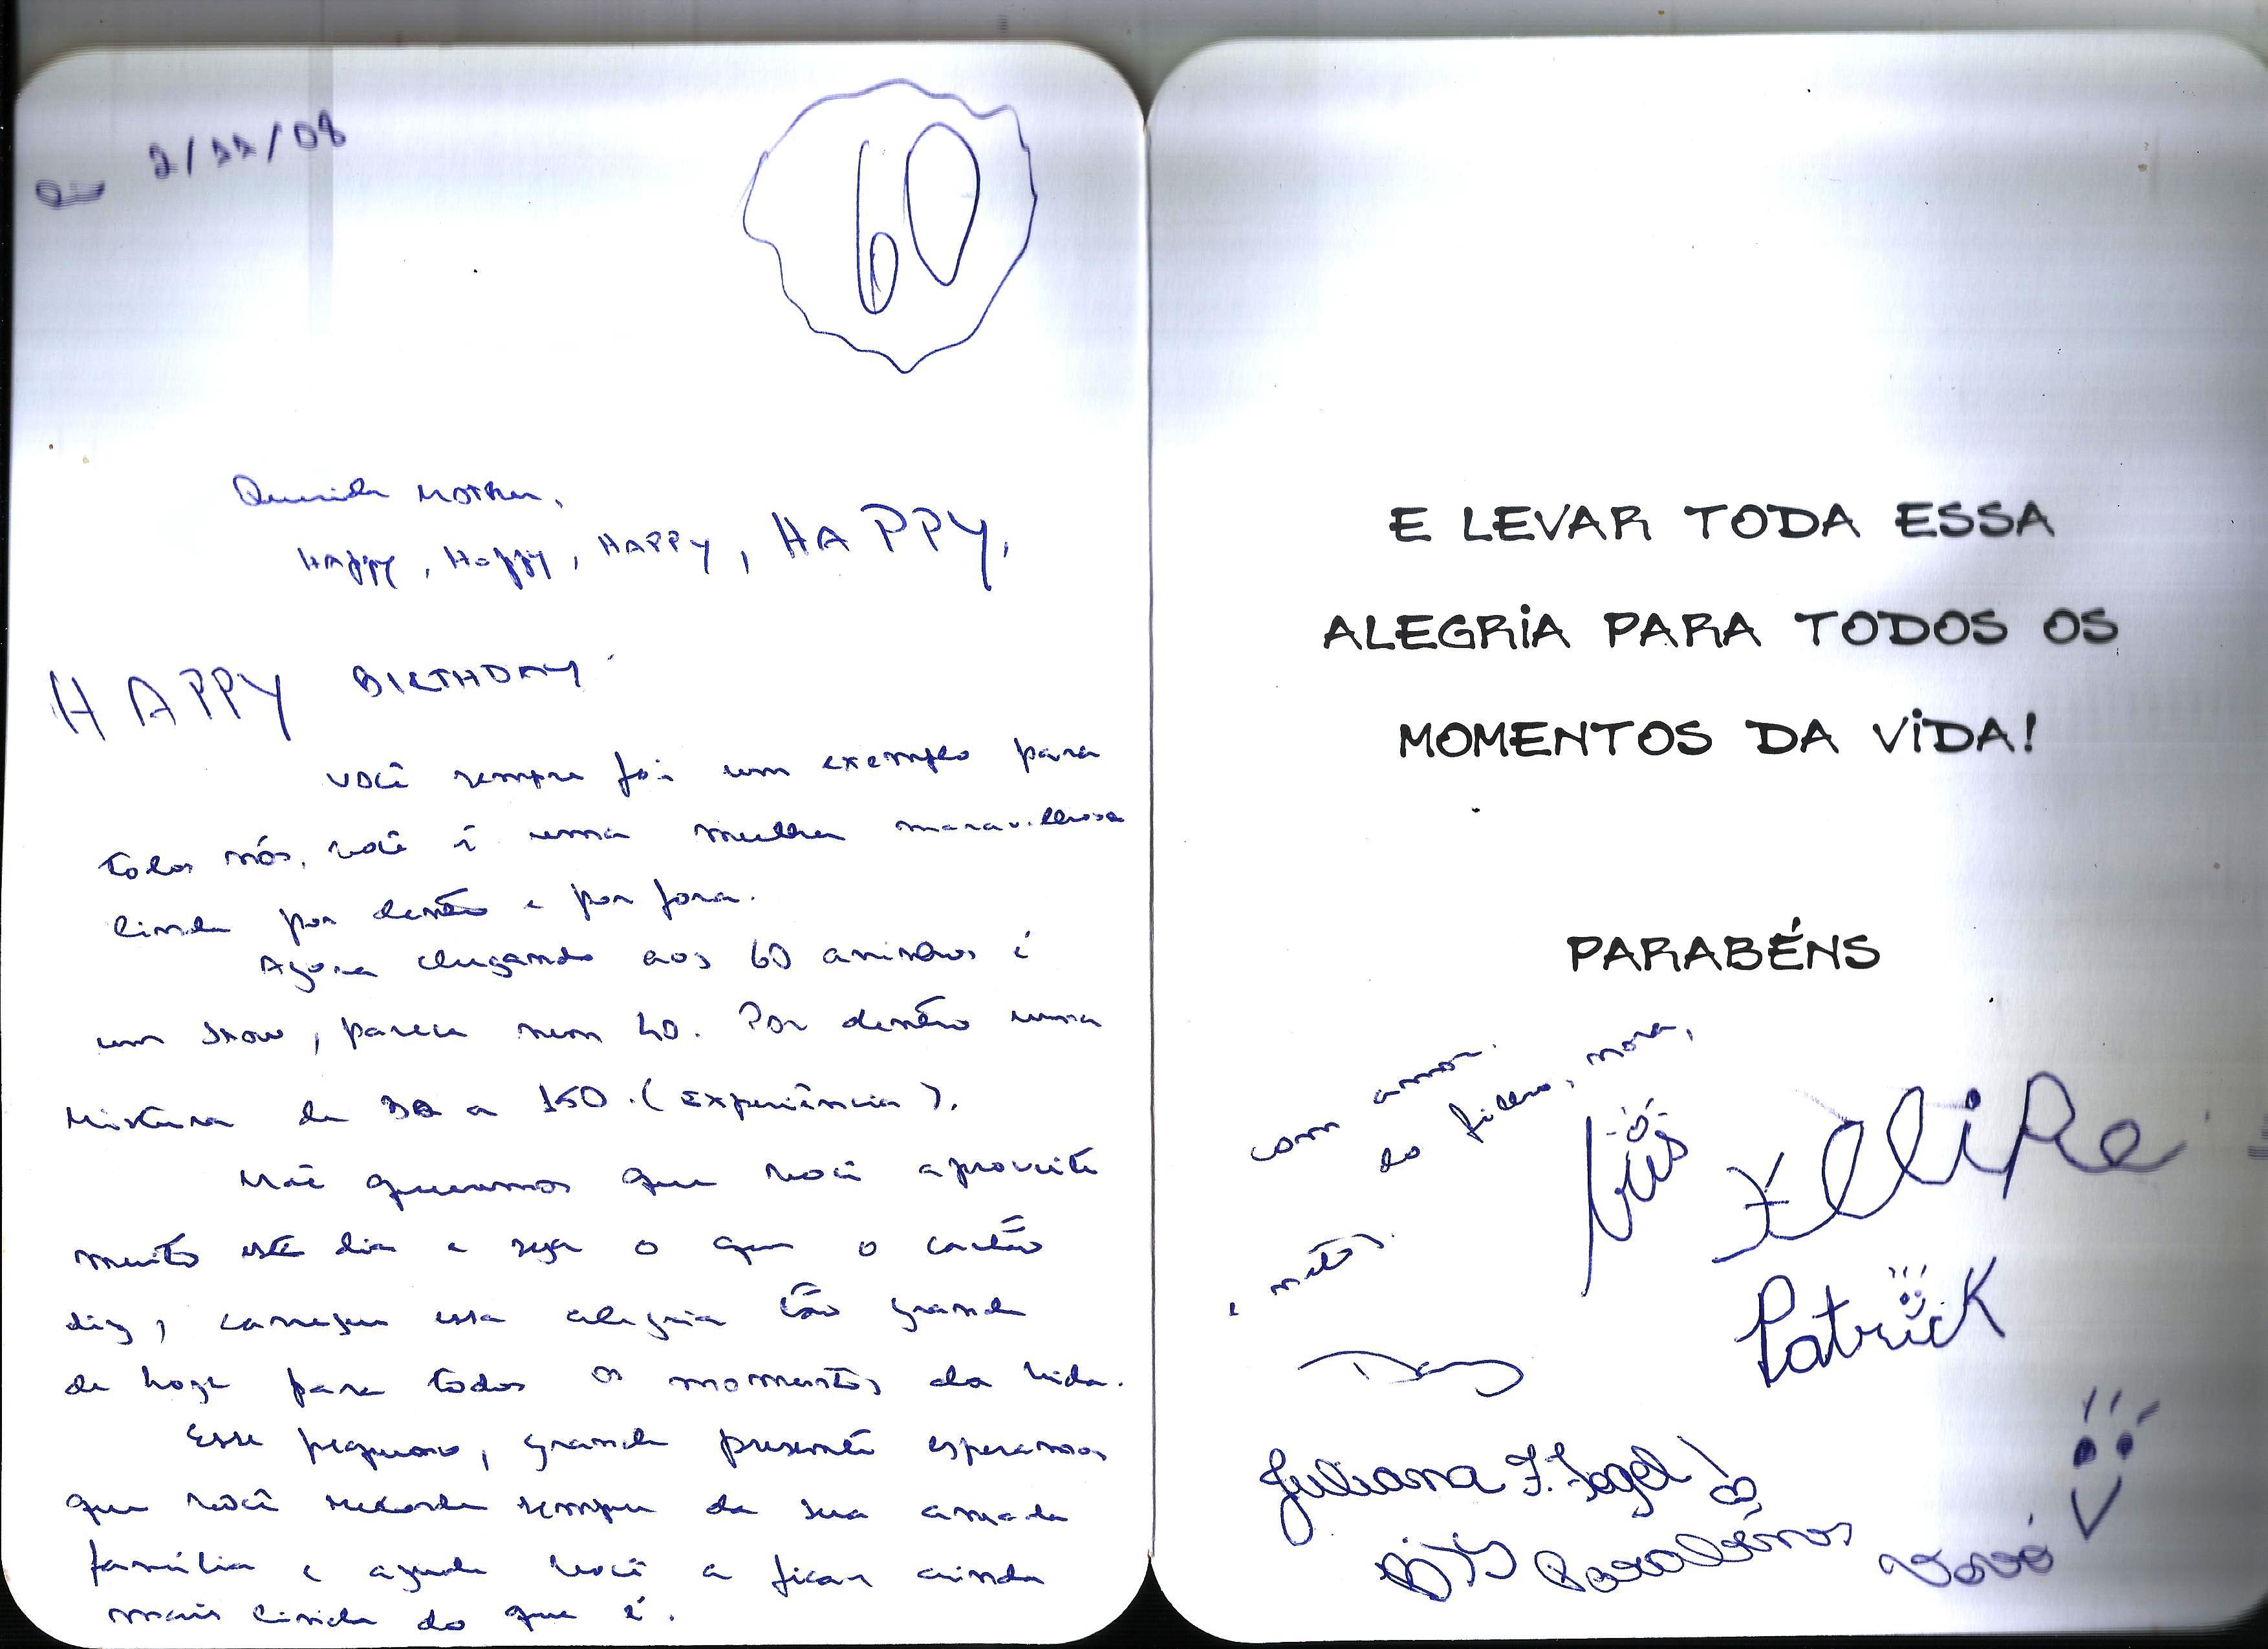 60
Querida Mother,
Happy, Happy, HAPPY, HAPPY,
HAPPY BIRTHDAY
Você sempre foi um exemplo para
todos nós, você é uma mulher maravilhosa
linda por dentro e por fora.
Agora chegando aos 60 aninhos é
um show, parece nem 40. Por dentro uma
mistura de 30 a 150. (Experiência).
Mãe queremos que você aproveite
muito este dia e seja o que o cartão
diz, carregue essa alegria tão grande
de hoje para todos os momentos da vida.
Esse pequeno, grande presente esperamos
que você recorde sempre da sua amada
família e ajude você a ficar ainda
mais linda do que é.
E LEVAR TODA ESSA
ALEGRIA PARA TODOS OS
MOMENTOS DA VIDA!
PARABÉNS
com amor.
do filho, nora,
e netos.
Fellipe
Patrick
Juliana F. Fogel
Parabéns Vovó